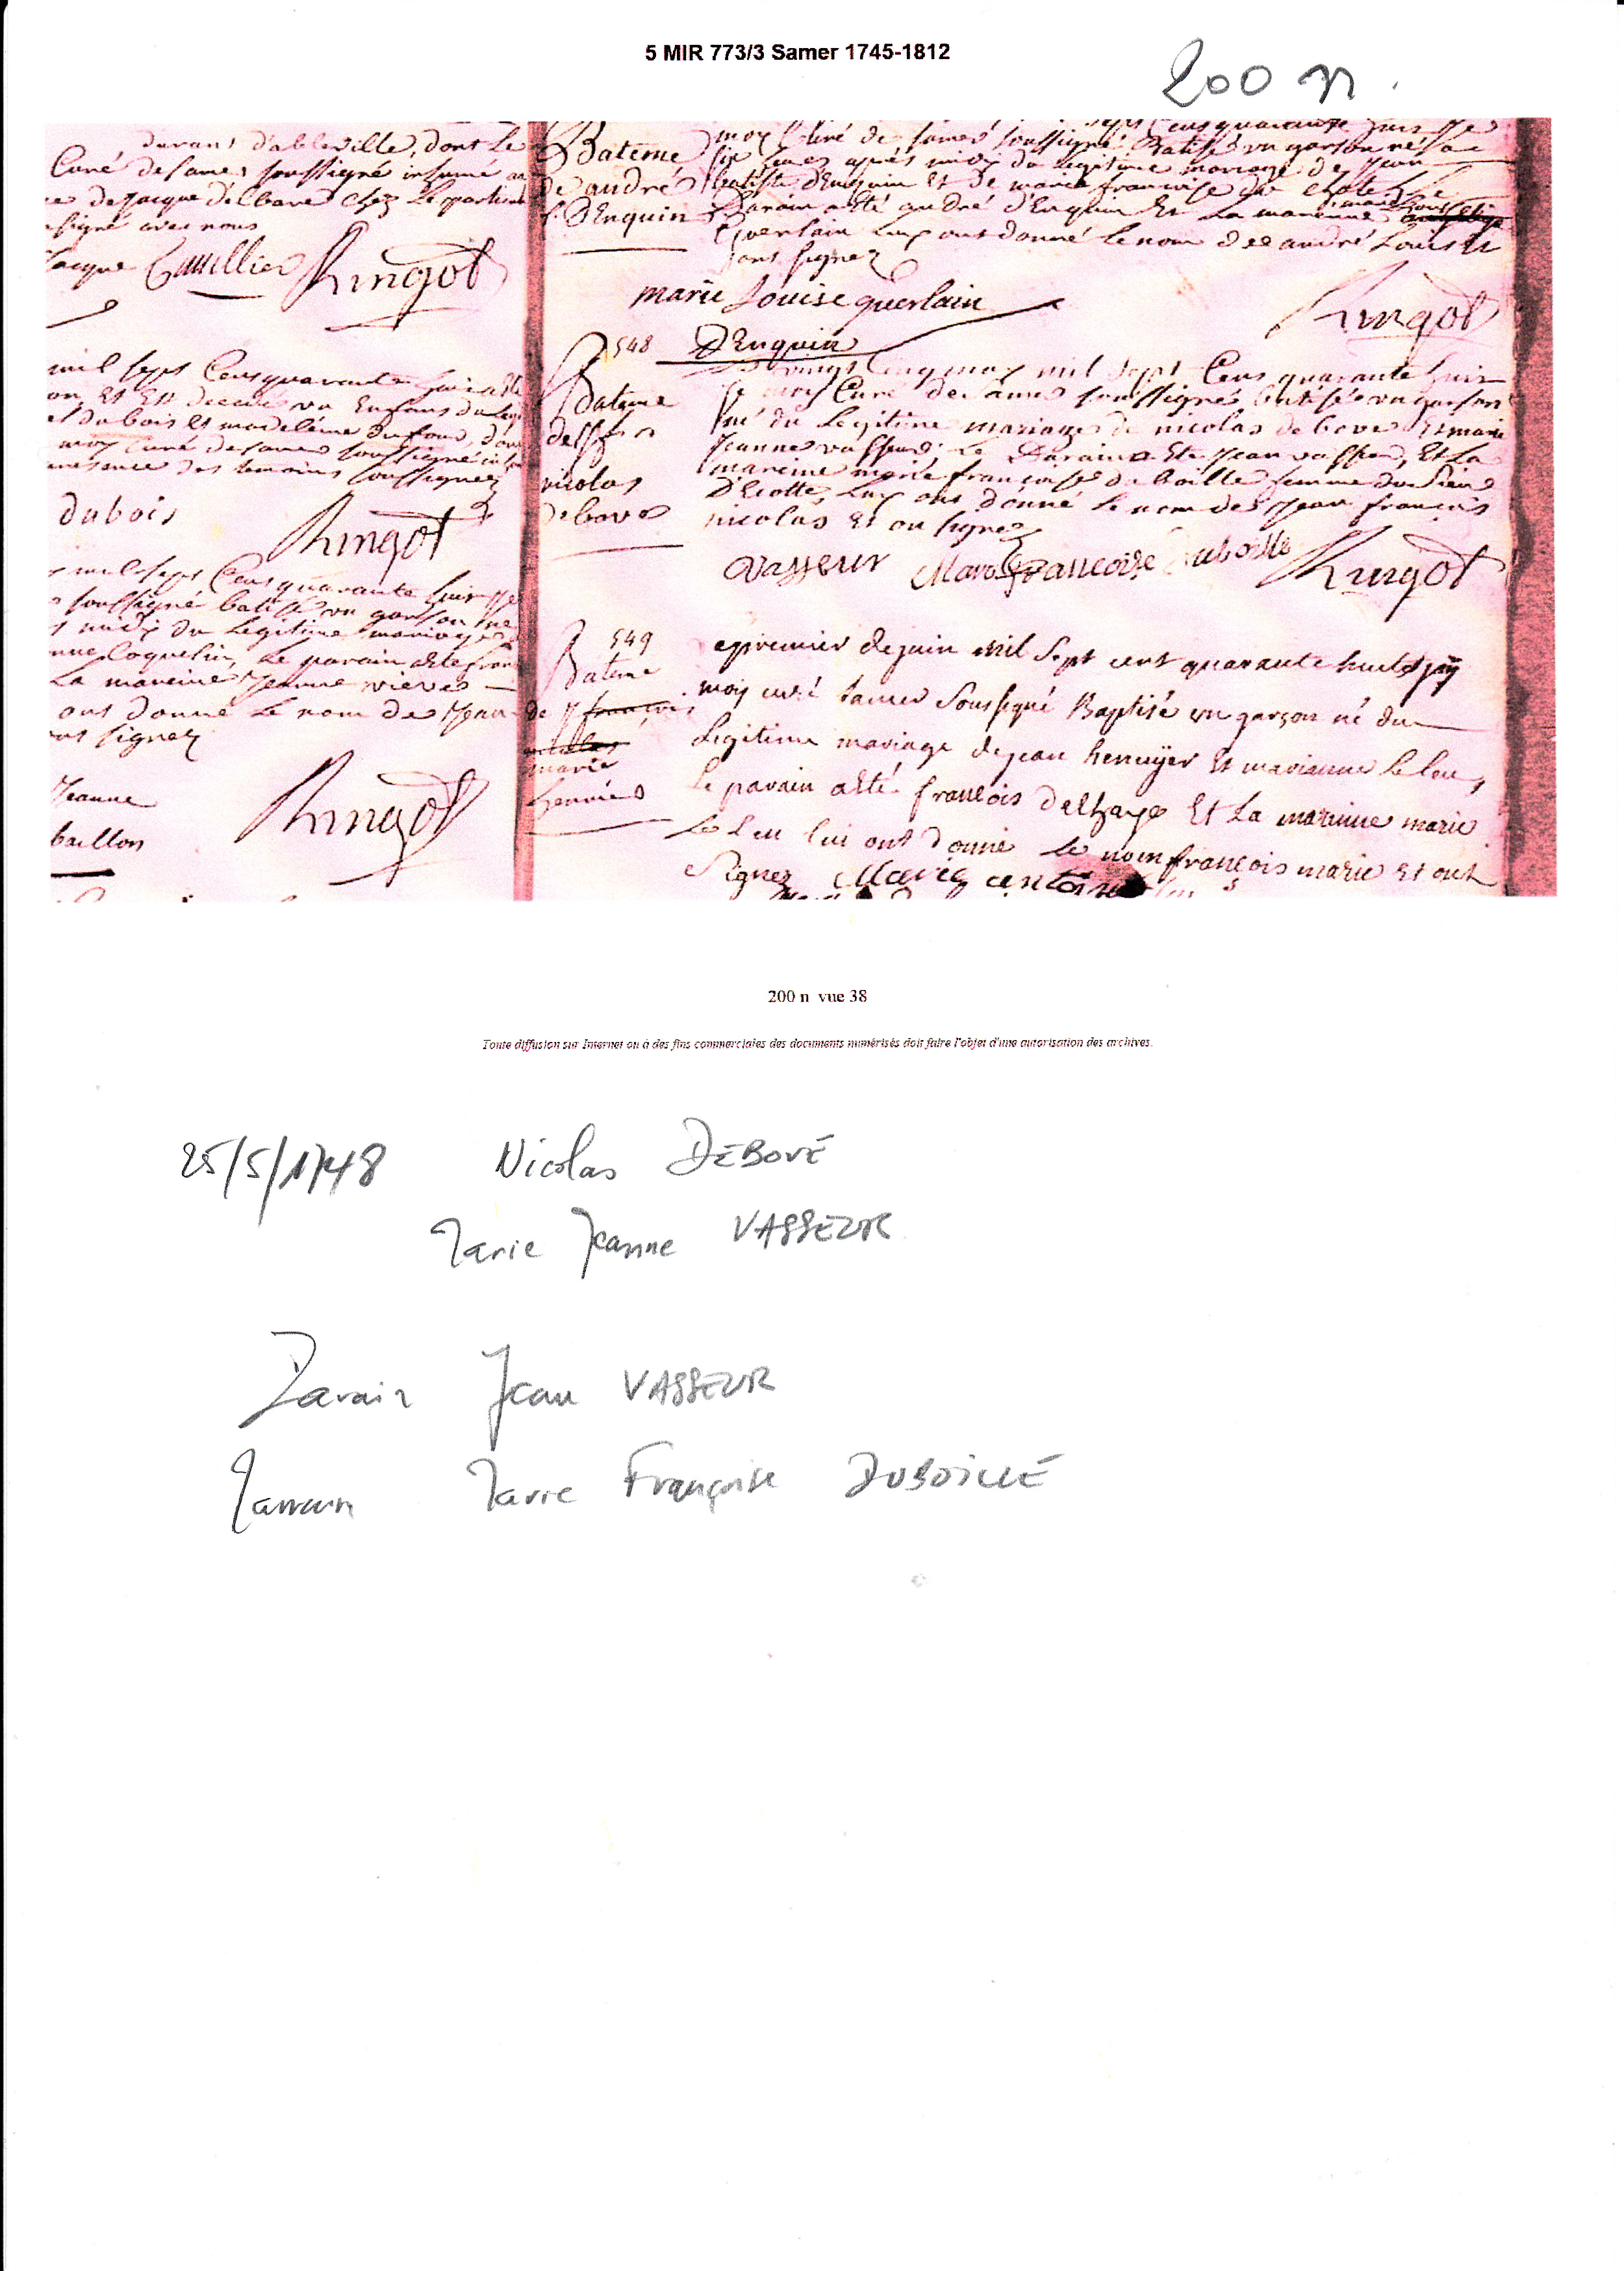 5 MIR 773/3 Samer 1745-1812
200 n.
durant d'abbeville, dont Le
Curé de samer soussigné inhumé
de Jacque delbare chez
signé avec nous
Jacque Cauillier Ringot
mil sept Cens quarante huit
on Et Est decedé un Enfans du
et dubois Et madeleine du four
moy Curé de samer soussigné
presence des temoins soussignez
dubois
Ringot
mil sept Cens quarante huit
soussigné batisé un garson né
midy du Legitime mariage
Coquelin, Le parain a Esté
La mareine Jeanne vieves
ont donné Le nom de Jean
signez
Jeanne
baillon
Ringot
Bateme
de andré
L. D'Enquin
moy Curé de samer soussigné Batisé un garson né
six heures après midy du legitime mariage de Jean
batiste d'Enquin Et de marie francoise
Parain a Esté andré d'Enquin Et La mareinne
Guerlain Luy ont donné Le nom de andré Louis Et
ont signez
marie Louise querlain
D'Enquin
Ringot
548
Bateme
de
nicolas
debove
vingt Cinq may mil sept Cens quarante huit
Je moy Curé de samer soussigné batisé un garson
né du Legitime mariage de nicolas debove Et marie
Jeanne vasseur Le Parain a Esté Jean vasseur, Et La
mareine marie francoise duboille femme du sieur
D'Ecotte, Luy ont donné Le nom de Jean francois
nicolas Et on signez
vasseur Marie Francoise duboille Ringot
549
Bateme
de francois
nicolas
marie
epremier de juin mil sept cent quarante huit je
moy curé samer soussigné Baptisé un garçon né du
Legitime mariage de jean hennyer Et marianne le leu,
Le parain a Esté francois delhaye Et La marinne marie
Le Leu lui ont donné le nom francois marie Et ont
Signez Marie
200 n vue 38
Toute diffusion sur Internet ou à des fins commerciales des documents numérisés doit faire l'objet d'une autorisation des archives.
25/5/1748 Nicolas DEBOVE
Marie Jeanne VASSEUR
Parain Jean VASSEUR
Marraine Marie Françoise DUBOILLE